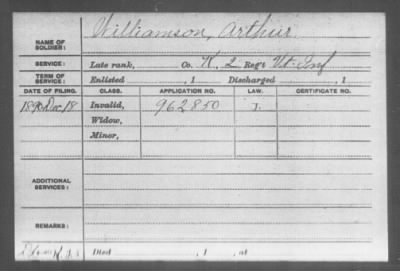 NAME OF SOLDIER: Williamson, Arthur
SERVICE: Late rank, Co. K, 2 Reg't Vt. Inf
TERM OF SERVICE: Enlisted , 1 Discharged , 1
DATE OF FILING. CLASS. APPLICATION NO. LAW. CERTIFICATE NO.
1890 Dec. 18 Invalid, 962850 J.
Widow,
Minor,
ADDITIONAL SERVICES:
REMARKS:
Died , 1 , at